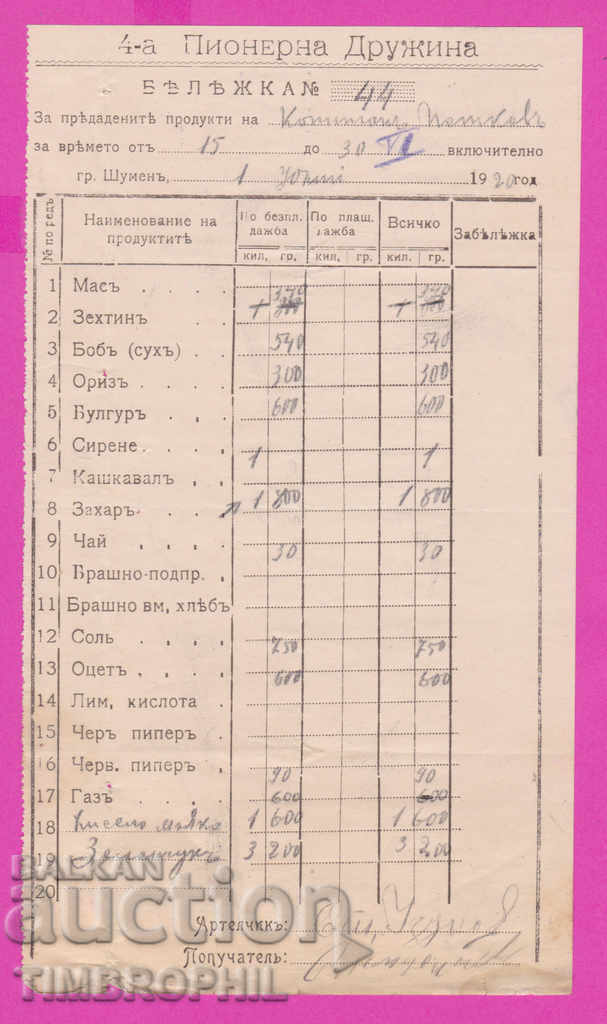 4-а Пионерна Дружина
БѢЛѢЖКА № 44
За прѣдаденитѣ продукти на
за врѣмето отъ 15 до 30 VI включително
гр. Шуменъ, 1 Юлий 1920 год
№ по редъ Наименование на продуктитѣ По безпл. дажба По плащ. дажба Всичко Забѣлѣжка
кил. гр. кил. гр. кил. гр.
1 Масъ . . . . 340 340
2 Зехтинъ . . 1 800 1 800
3 Бобъ (сухъ) . . 540 540
4 Оризъ . . . . 300 300
5 Булгуръ . . . 600 600
6 Сирене . . . . 1 1
7 Кашкавалъ , ,
8 Захаръ . . . . 1 800 1 800
9 Чай , , , , 30 30
10 Брашно-подпр. ,
11 Брашно вм, хлѣбъ
12 Соль . , , , 750 750
13 Оцетъ . , , , 600 600
14 Лим, кислота .
15 Черъ пиперъ . .
16 Черв. пиперъ , 90 90
17 Газъ . . . . 600 600
18 Кисело млѣко 1 600 1 600
19 Зеленчукъ 3 200 3 200
20
Артелчикъ:
Получатель:
BALKAN
auction
TIMBROPHIL